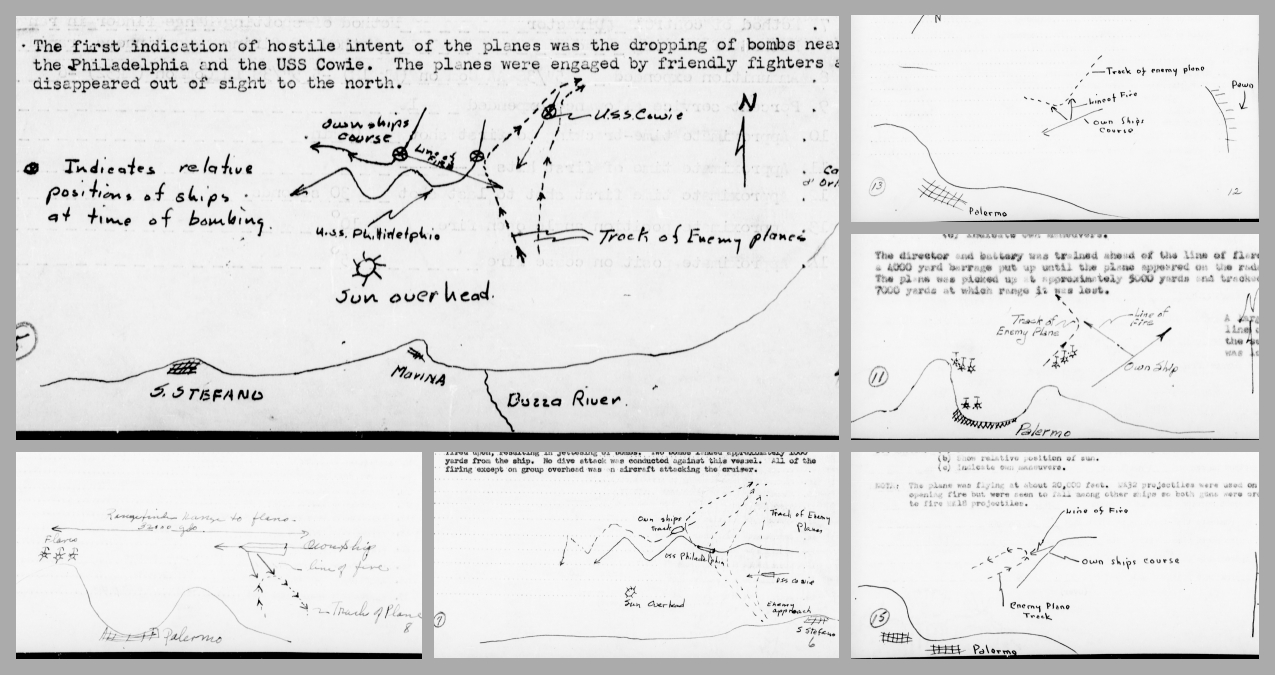 · The first indication of hostile intent of the planes was the dropping of bombs near
the Philadelphia and the USS Cowie. The planes were engaged by friendly fighters
disappeared out of sight to the north.
own ships
course
Line of
Fire
U.S.S. Cowie
N
Indicates relative
positions of ships
at time of bombing.
U.S.S. Phillidelphia
Track of Enemy planes
Sun overhead.
S. STEFANO
MARINA
Buzza River.
N
Track of enemy plane
Line of Fire
Own Ships
Course
Dawn
13
Palermo
12
(c) Indicate own maneuvers.
The director and battery was trained ahead of the line of flare
a 4000 yard barrage put up until the plane appeared on the rada
The plane was picked up at approximately 5000 yards and tracked
7000 yards at which range it was lost.
Track of
Enemy Plane
Line of
Fire
Own Ship
11
Palermo
Range to flare
Flares
Ownship
line of fire
Track of Plane
8
Palermo
fired upon, resulting in jettosing of bombs. Two bombs landed approximately 1000
yards from the ship. No dive attack was conducted against this vessel. All of the
firing except on group overhead was on aircraft attacking the cruiser.
Own ships
Track
Track of Enemy
Planes
USS Philadelphia
USS Cowie
Sun Overhead
Enemy
approach
S Stefano
6
(b) Show relative position of sun.
(c) Indicate own maneuvers.
NOTE: The plane was flying at about 20,000 feet. projectiles were used on
opening fire but were seen to fall among other ships so both guns were
to fire projectiles.
Line of Fire
Own ships course
Enemy Plane
Track
15
Palermo